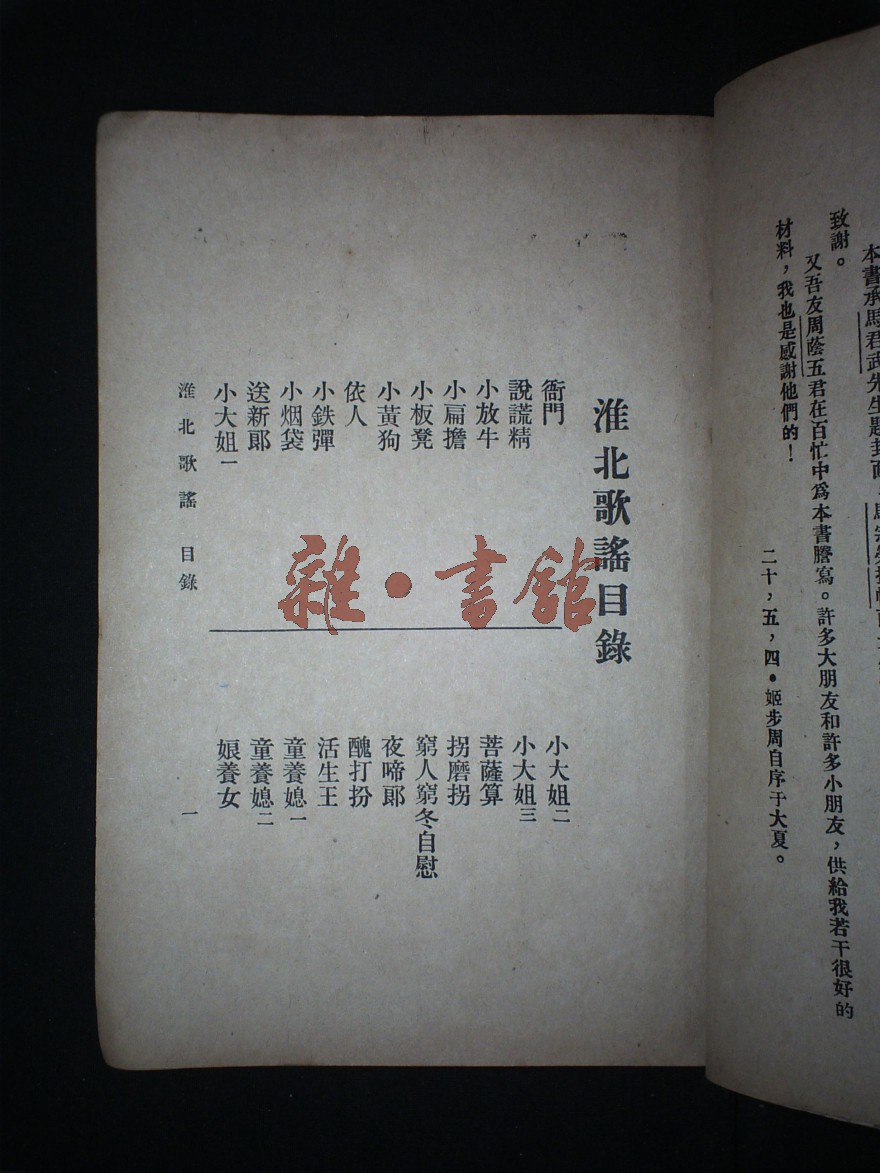 本書承馬君武先生題封面
致謝。
又吾友周蔭五君在百忙中爲本書謄寫。許多大朋友和許多小朋友,供給我若干很好的
材料,我也是感謝他們的!
二十,五,四•姬步周自序于大夏。
淮北歌謠目錄
衙門
說謊精
小放牛
小扁擔
小板凳
小黃狗
依人
小鉄彈
小烟袋
送新郞
小大姐一
小大姐二
小大姐三
菩薩算
拐磨拐
窮人窮冬自慰
夜啼郞
醜打扮
活生王
童養媳一
童養媳二
娘養女
淮北歌謠 目錄
一
雜•書館